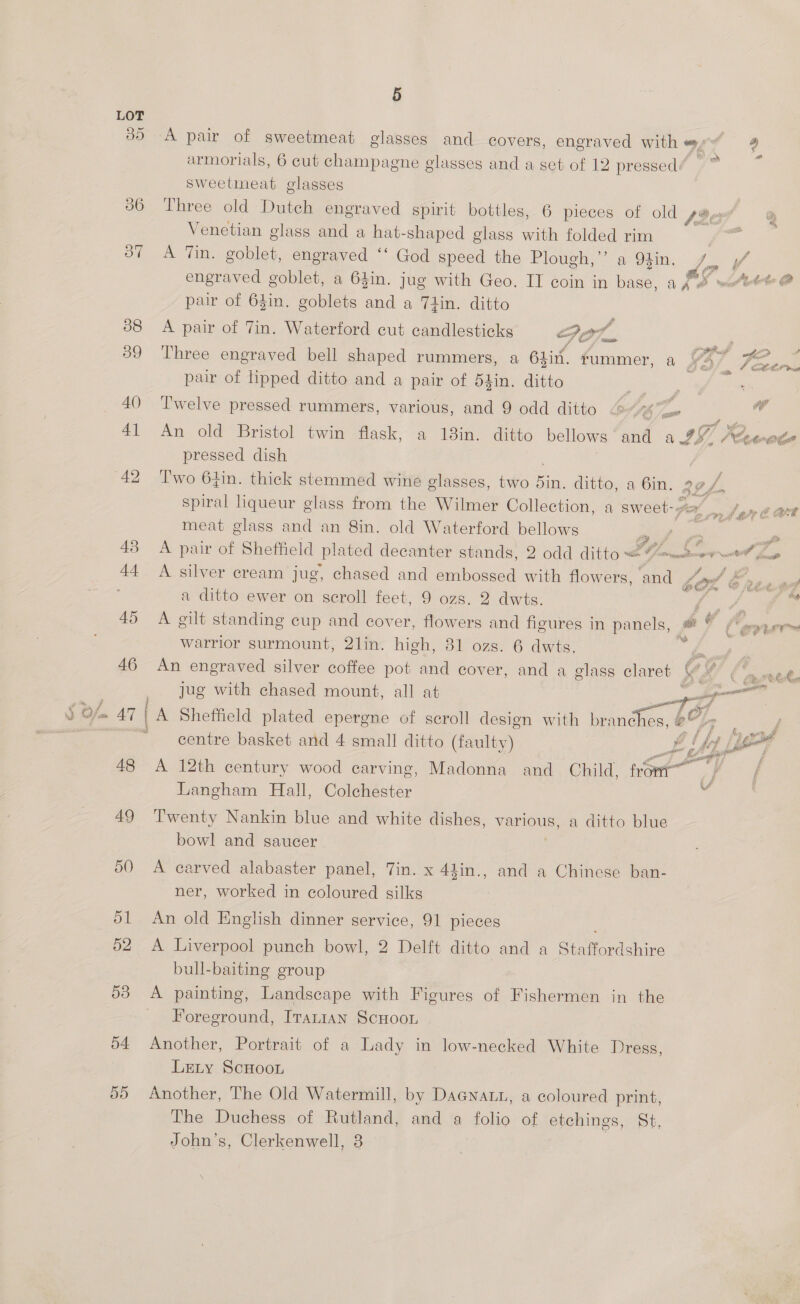 5
LOT
35 A pair of sweetmeat glasses and covers, engraved with
armorials, 6 cut champagne glasses and a set of 12 pressed
sweetmeat glasses
36 Three old Dutch engraved spirit bottles, 6 pieces of old
Venetian glass and a hat-shaped glass with folded rim
37 A 7in. goblet, engraved “ God speed the Plough,” a 9½in.
engraved goblet, a 6½in. jug with Geo. II coin in base, a
pair of 6½in. goblets and a 7¼in. ditto
38 A pair of 7in. Waterford cut candlesticks
39 Three engraved bell shaped rummers, a 6½in. rummer, a
pair of lipped ditto and a pair of 5½in. ditto
40 Twelve pressed rummers, various, and 9 odd ditto
41 An old Bristol twin flask, a 13in. ditto bellows and a
pressed dish
42 Two 6¼in. thick stemmed wine glasses, two 5in. ditto, a 6in.
spiral liqueur glass from the Wilmer Collection, a sweet-
meat glass and an 8in. old Waterford bellows
43 A pair of Sheffield plated decanter stands, 2 odd ditto
44 A silver cream jug, chased and embossed with flowers, and
a ditto ewer on scroll feet, 9 ozs. 2 dwts.
45 A gilt standing cup and cover, flowers and figures in panels,
warrior surmount, 21in. high, 31 ozs. 6 dwts.
46 An engraved silver coffee pot and cover, and a glass claret
jug with chased mount, all at
47 A Sheffield plated epergne of scroll design with branches,
centre basket and 4 small ditto (faulty)
48 A 12th century wood carving, Madonna and Child, from
Langham Hall, Colchester
49 Twenty Nankin blue and white dishes, various, a ditto blue
bowl and saucer
50 A carved alabaster panel, 7in. x 4½in., and a Chinese ban-
ner, worked in coloured silks
51 An old English dinner service, 91 pieces
52 A Liverpool punch bowl, 2 Delft ditto and a Staffordshire
bull-baiting group
53 A painting, Landscape with Figures of Fishermen in the
Foreground, ITALIAN SCHOOL
54 Another, Portrait of a Lady in low-necked White Dress,
LELY SCHOOL
55 Another, The Old Watermill, by DAGNALL, a coloured print,
The Duchess of Rutland, and a folio of etchings, St.
John's, Clerkenwell, 3